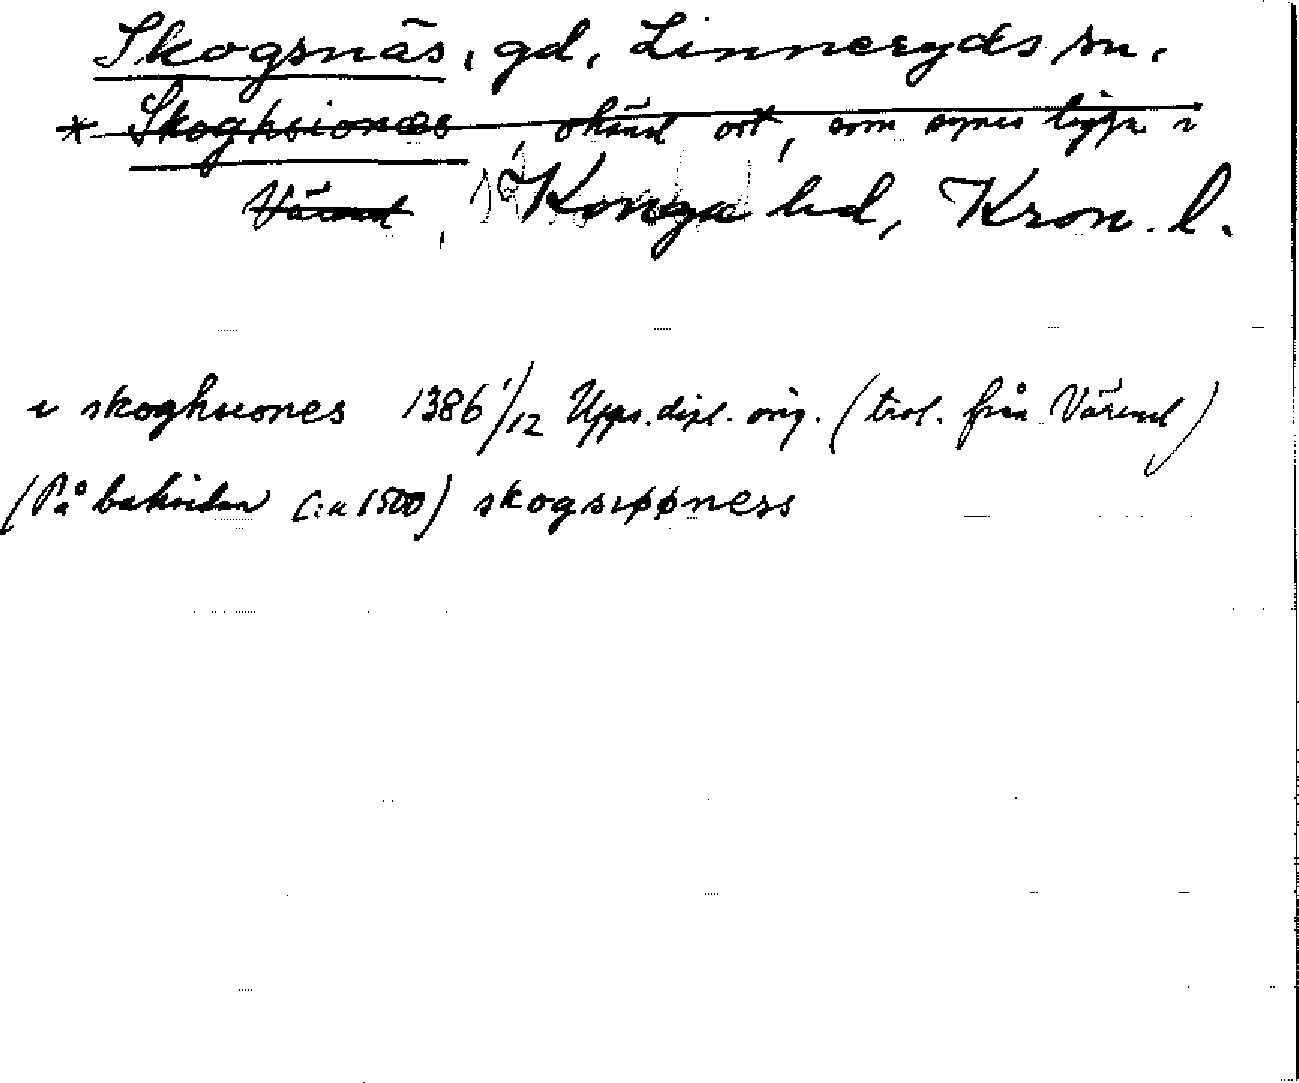 Skogsnäs, gd, Linneryds sn.
* Skoghsiones, okänd ort, som synes ligga i
Värend, Konga hd, Kron. l.
i skoghsiones 1386 1/12 Upps. dipl. orig. (trol. från Värend)
(På baksidan c:a 1500) skogsiøøness